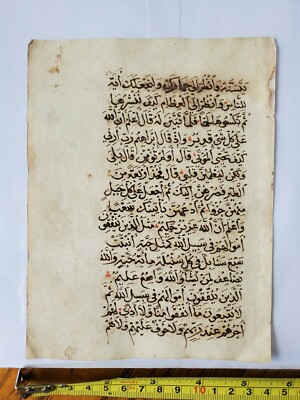 يتسنه وانظر الى حمارك ولنجعلك اية
للناس وانظر الى العظام كيف ننشرها
ثم نكسوها لحما فلما تبين له قال اعلم ان الله
على كل شيء قدير واذ قال ابراهيم رب ارني
كيف تحي الموتى قال اولم تومن قال بلى
ولكن ليطمئن قلبي قال فخذ اربعة من
الطير فصرهن اليك ثم اجعل على كل جبل
منهن جزءا ثم ادعهن ياتينك سعيا
واعلم ان الله عزيز حكيم مثل الذين ينفقون
اموالهم في سبيل الله كمثل حبة انبتت
سبع سنابل في كل سنبلة مائة حبة والله
يضاعف لمن يشاء والله واسع عليم
الذين ينفقون اموالهم في سبيل الله ثم
لا يتبعون ما انفقوا منا ولا اذى لهم
اجرهم عند ربهم ولا خوف عليهم ولا هم